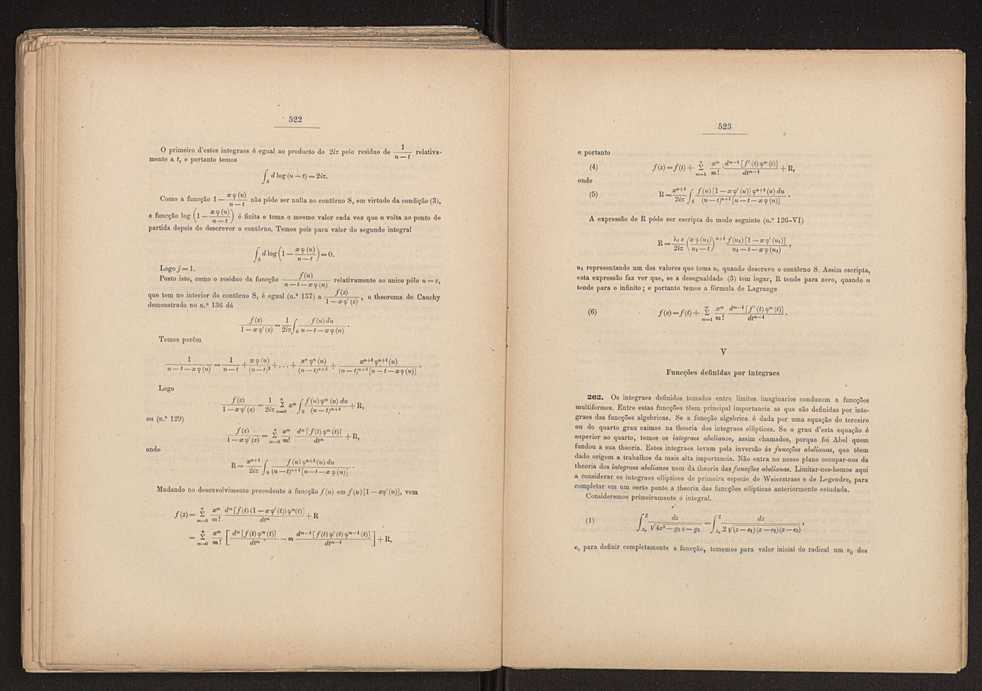 522
O primeiro d'estes integraes é egual ao producto de 2iπ pelo residuo de 1/(u − t) relativa-
mente a t, e portanto temos
∫_S d log (u − t) = 2iπ.
Como a funcção 1 − xφ(u)/(u − t) não póde ser nulla no contôrno S, em virtude da condição (3),
a funcção log (1 − xφ(u)/(u − t)) é finita e toma o mesmo valor cada vez que u volta ao ponto de
partida depois de descrever o contôrno. Temos pois para valor do segundo integral
∫_S d log (1 − xφ(u)/(u − t)) = 0.
Logo j = 1.
Posto isto, como o residuo da funcção f(u)/(u − t − xφ(u)) relativamente ao unico pólo u = z,
que tem no interior do contôrno S, é egual (n.º 137) a f(z)/(1 − xφ′(z)), o theorema de Cauchy
demonstrado no n.º 136 dá
f(z)/(1 − xφ′(z)) = 1/2iπ ∫_S f(u) du/(u − t − xφ(u)).
Temos porém
1/(u − t − xφ(u)) = 1/(u − t) + xφ(u)/(u − t)² + . . . + xⁿφⁿ(u)/(u − t)ⁿ⁺¹ + xⁿ⁺¹φⁿ⁺¹(u)/((u − t)ⁿ⁺¹[u − t − xφ(u)]).
Logo
f(z)/(1 − xφ′(z)) = 1/2iπ Σ_{m=0}^{n} xᵐ ∫_S f(u)φᵐ(u) du/(u − t)ᵐ⁺¹ + R,
ou (n.º 129)
f(z)/(1 − xφ′(z)) = Σ_{m=0}^{n} xᵐ/m! dᵐ[f(t)φᵐ(t)]/dtᵐ + R,
onde
R = xⁿ⁺¹/2iπ ∫_S f(u)φⁿ⁺¹(u) du/((u − t)ⁿ⁺¹[u − t − xφ(u)]).
Mudando no desenvolvimento precedente a funcção f(u) em f(u)[1 − xφ′(u)], vem
f(z) = Σ_{m=0}^{n} xᵐ/m! dᵐ[f(t)(1 − xφ′(t))φᵐ(t)]/dtᵐ + R
= Σ_{m=0}^{n} xᵐ/m! [dᵐ[f(t)φᵐ(t)]/dtᵐ − m dᵐ⁻¹[f(t)φ′(t)φᵐ⁻¹(t)]/dtᵐ⁻¹] + R,
523
e portanto
(4) f(z) = f(t) + Σ_{m=1}^{n} xᵐ/m! dᵐ⁻¹[f′(t)φᵐ(t)]/dtᵐ⁻¹ + R,
onde
(5) R = xⁿ⁺¹/2iπ ∫_S f(u)[1 − xφ′(u)]φⁿ⁺¹(u) du/((u − t)ⁿ⁺¹[u − t − xφ(u)]).
A expressão de R póde ser escripta do modo seguinte (n.º 126-VI)
R = λs/2iπ (xφ(u₁)/(u₁ − t))ⁿ⁺¹ f(u₁)[1 − xφ′(u₁)]/(u₁ − t − xφ(u₁)),
u₁ representando um dos valores que toma u, quando descreve o contôrno S. Assim escripta,
esta expressão faz ver que, se a desegualdade (3) tem logar, R tende para zero, quando n
tende para o infinito; e portanto temos a fórmula de Lagrange
(6) f(z) = f(t) + Σ_{m=1}^{∞} xᵐ/m! dᵐ⁻¹[f′(t)φᵐ(t)]/dtᵐ⁻¹.
V
Funcções definidas por integraes
262. Os integraes definidos tomados entre limites imaginarios conduzem a funcções
multiformes. Entre estas funcções têem principal importancia as que são definidas por inte-
graes das funcções algebricas. Se a funcção algebrica é dada por uma equação do terceiro
ou do quarto grau caimos na theoria dos integraes ellipticos. Se o grau d'esta equação é
superior ao quarto, temos os integraes abelianos, assim chamados, porque foi Abel quem
fundou a sua theoria. Estes integraes levam pela inversão ás funcções abelianas, que têem
dado origem a trabalhos da mais alta importancia. Não entra no nosso plano occupar-nos da
theoria dos integraes abelianos nem da theoria das funcções abelianas. Limitar-nos-hemos aqui
a considerar os integraes ellipticos de primeira especie de Weierstrass e de Legendre, para
completar em um certo ponto a theoria das funcções ellipticas anteriormente estudada.
Consideremos primeiramente o integral.
(1) ∫_{z₀}^{Z} dz/√(4z³ − g₂z − g₃) = ∫_{z₀}^{Z} dz/(2√((z − e₁)(z − e₂)(z − e₃))),
e, para definir completamente a funcção, tomemos para valor inicial do radical um s₀ dos